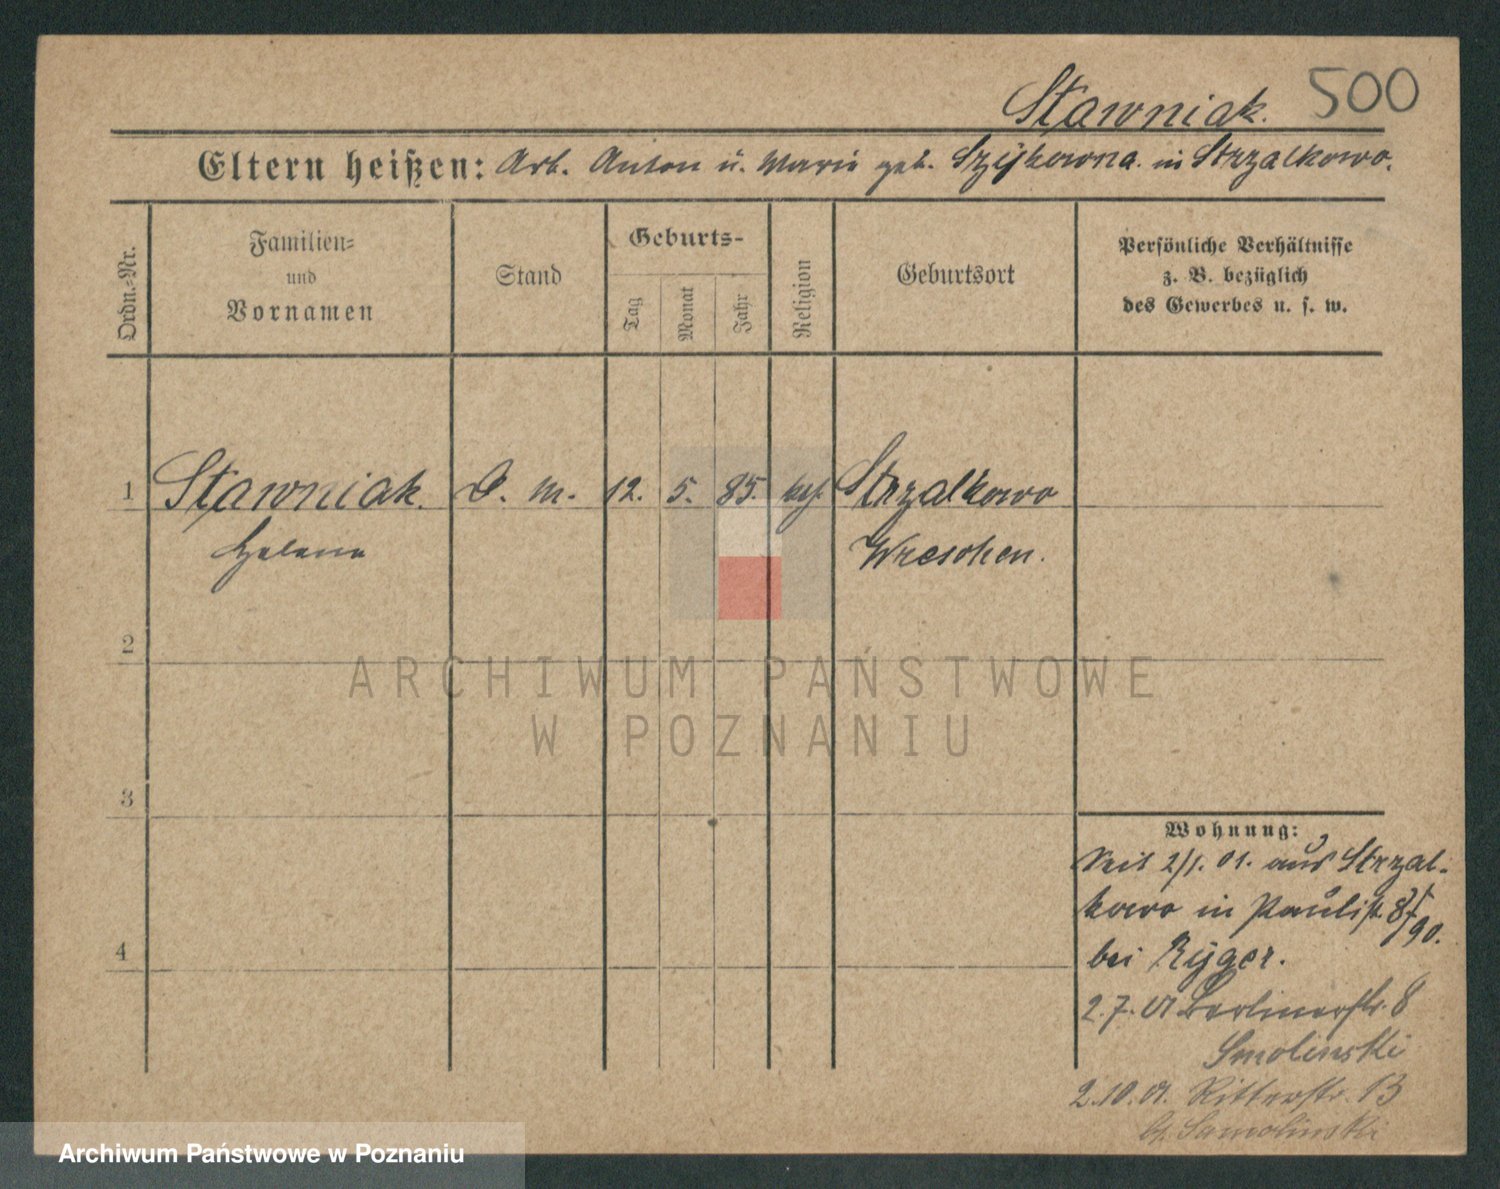 Stawniak. 500
Eltern heißen: Arb. Anton u. Marie geb. Szijkowna. in Strzalkowo.
Ordn.-Nr.
Familien-
und
Vornamen
Stand
Geburts-
Tag
Monat
Jahr
Religion
Geburtsort
Persönliche Verhältnisse
z. B. bezüglich
des Gewerbes u. s. w.
1 Stawniak. D. M. 12. 5. 85. kth. Strzalkowo
Helena Wreschen.
2
3
4
Wohnung:
Seit 2/1. 01. aus Strzal-
kowo in Paulist. 8
bei Ryger.
2.7.01 Berlinerstr. 8
Smolinski
2.10.01. Ritterstr. 13
b. Smolinski
ARCHIWUM PAŃSTWOWE
W POZNANIU
Archiwum Państwowe w Poznaniu